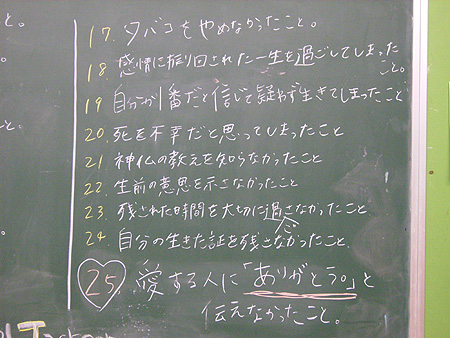 17. タバコをやめなかったこと。
18. 感情に振り回された一生を過ごしてしまった
こと。
19 自分が1番だと信じて疑わず生きてしまったこと
20. 死を不幸だと思ってしまったこと
21 神仏の教えを知らなかったこと
22. 生前の意思を示さなかったこと
23. 残された時間を大切に過ごさなかったこと
24. 自分の生きた証を残さなかったこと
25. 愛する人に「ありがとう。」と
伝えなかったこと。